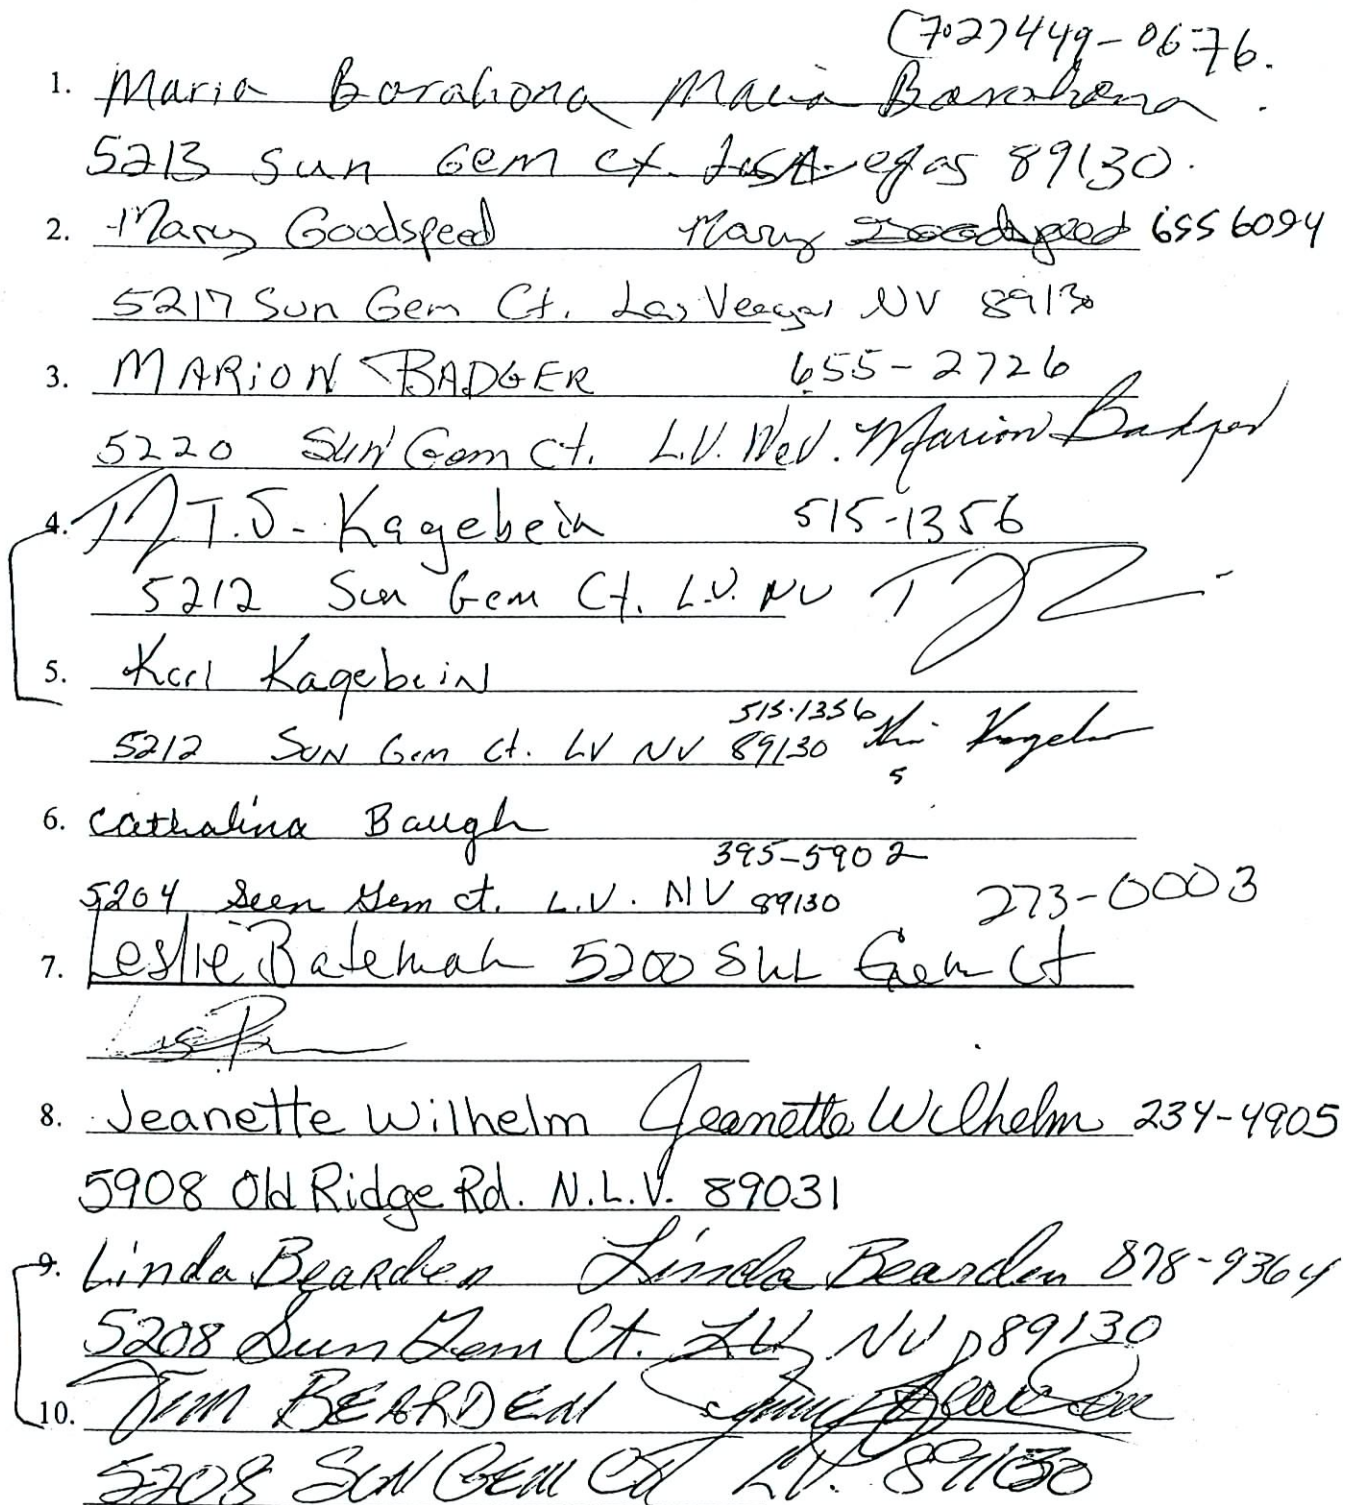 (702) 449-0676.
1. Maria Barahona Maria Barahona.
5213 Sun Gem Ct. Las Vegas 89130.
2. Mary Goodspeed Mary Goodspeed 655 6094
5217 Sun Gem Ct. Las Veegas NV 89130
3. MARION BADGER 655-2726
5220 Sun Gem Ct. L.V. Nev. Marion Badger
4. T.J. Kagebein 515-1356
5212 Sun Gem Ct. L.V. NV
5. Karl Kagebein
515-1356
5212 SUN Gem Ct. LV NV 89130
5
6. Cathalina Baugh
395-5902
5204 Seen Gem ct. L.V. NV 89130 273-0003
7. Leslie Bateman 5200 Sun Gem Ct
8. Jeanette Wilhelm Jeanette Wilhelm 234-4905
5908 Old Ridge Rd. N.L.V. 89031
9. Linda Bearden Linda Bearden 878-9364
5208 Sun Gem Ct. LV NV 89130
10. Tim BEARDEN
5208 SUN GEM Ct LV. 89130